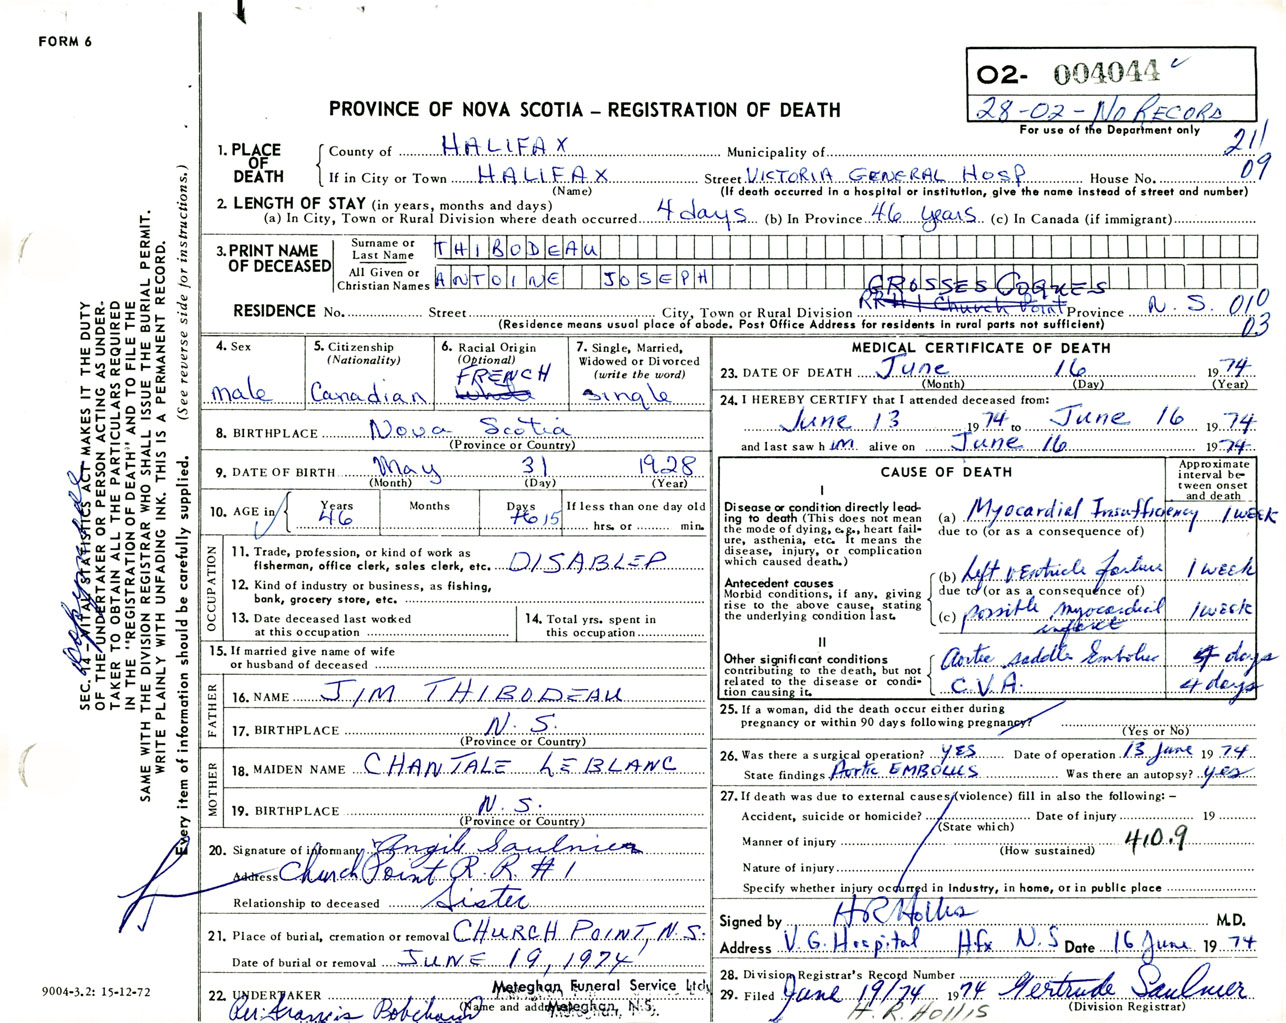 FORM 6
O2- 004044
28-02-NO RECORD
For use of the Department only
PROVINCE OF NOVA SCOTIA – REGISTRATION OF DEATH
211
09
1. PLACE OF DEATH
County of HALIFAX Municipality of
If in City or Town HALIFAX Street VICTORIA GENERAL HOSP House No.
(Name) (If death occurred in a hospital or institution, give the name instead of street and number)
2. LENGTH OF STAY (in years, months and days)
(a) In City, Town or Rural Division where death occurred 4 days (b) In Province 46 years (c) In Canada (if immigrant)
3. PRINT NAME OF DECEASED
Surname or Last Name THIBODEAU
All Given or Christian Names ANTOINE JOSEPH
GROSSES COQUES
RESIDENCE No. Street City, Town or Rural Division RR#1 Church Point Province N.S. 010
03
(Residence means usual place of abode. Post Office Address for residents in rural parts not sufficient)
4. Sex
male
5. Citizenship
(Nationality)
Canadian
6. Racial Origin
(Optional)
FRENCH
7. Single, Married,
Widowed or Divorced
(write the word)
single
8. BIRTHPLACE Nova Scotia
(Province or Country)
9. DATE OF BIRTH May 31 1928
(Month) (Day) (Year)
10. AGE in
Years Months Days If less than one day old
46 15 hrs. or min.
OCCUPATION
11. Trade, profession, or kind of work as
fisherman, office clerk, sales clerk, etc. DISABLED
12. Kind of industry or business, as fishing,
bank, grocery store, etc.
13. Date deceased last worked
at this occupation
14. Total yrs. spent in
this occupation
15. If married give name of wife
or husband of deceased
FATHER
16. NAME JIM THIBODEAU
17. BIRTHPLACE N.S.
(Province or Country)
MOTHER
18. MAIDEN NAME CHANTALE LEBLANC
19. BIRTHPLACE N.S.
(Province or Country)
20. Signature of informant Angile Saulnier
Address Church Point R.R.#1
Relationship to deceased Sister
21. Place of burial, cremation or removal CHURCH POINT, N.S.
Date of burial or removal JUNE 19, 1974
22. UNDERTAKER Meteghan Funeral Service Ltd.
(Name and address) Meteghan, N.S.
Per: Francis
MEDICAL CERTIFICATE OF DEATH
23. DATE OF DEATH June 16 1974
(Month) (Day) (Year)
24. I HEREBY CERTIFY that I attended deceased from:
June 13 1974 to June 16 1974
and last saw him alive on June 16 1974
CAUSE OF DEATH
Approximate
interval be-
tween onset
and death
I
Disease or condition directly lead-
ing to death (This does not mean
the mode of dying, e.g., heart fail-
ure, asthenia, etc. It means the
disease, injury, or complication
which caused death.)
(a) Myocardial Insufficiency 1 week
due to (or as a consequence of)
Antecedent causes
Morbid conditions, if any, giving
rise to the above cause, stating
the underlying condition last.
(b) Left Ventricle failure 1 week
due to (or as a consequence of)
(c) possible myocardial infarct 1 week
II
Other significant conditions
contributing to the death, but not
related to the disease or condi-
tion causing it.
Aortic saddle Embolus 4 days
C.V.A. 4 days
25. If a woman, did the death occur either during
pregnancy or within 90 days following pregnancy?
(Yes or No)
26. Was there a surgical operation? YES Date of operation 13 June 1974
State findings Aortic EMBOLUS Was there an autopsy? yes
27. If death was due to external causes (violence) fill in also the following: –
Accident, suicide or homicide? Date of injury 19
(State which)
Manner of injury 410.9
(How sustained)
Nature of injury
Specify whether injury occurred in Industry, in home, or in public place
Signed by HR Hollis M.D.
Address V.G. Hospital Hfx N.S Date 16 June 1974
28. Division Registrar's Record Number
29. Filed June 19/74 1974 Gertrude Saulnier
(Division Registrar)
H.R. HOLLIS
SEC. 14 – VITAL STATISTICS ACT MAKES IT THE DUTY
OF THE UNDERTAKER OR PERSON ACTING AS UNDER-
TAKER TO OBTAIN ALL THE PARTICULARS REQUIRED
IN THE "REGISTRATION OF DEATH" AND TO FILE THE
SAME WITH THE DIVISION REGISTRAR WHO SHALL ISSUE THE BURIAL PERMIT.
WRITE PLAINLY WITH UNFADING INK. THIS IS A PERMANENT RECORD.
Every item of information should be carefully supplied. (See reverse side for instructions.)
9004-3.2: 15-12-72